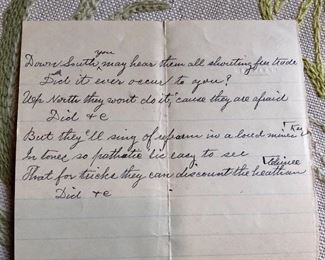 Down South, you may hear them all shouting free trade
Did it ever occur to you?
Up North they wont do it, 'cause they are afraid
Did &c
But they'll sing of reform in a loud minor key
In tones so pathetic tis easy to see
That for tricks they can discount the heathen Chinee
Did &c